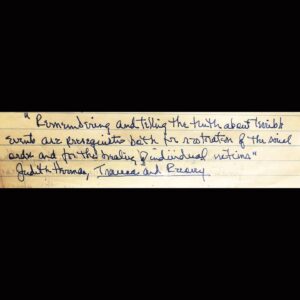 "Remembering and telling the truth about terrible
events are prerequisites both for restoration of the social
order and for the healing of individual victims"
Judith Herman, Trauma and Recovery